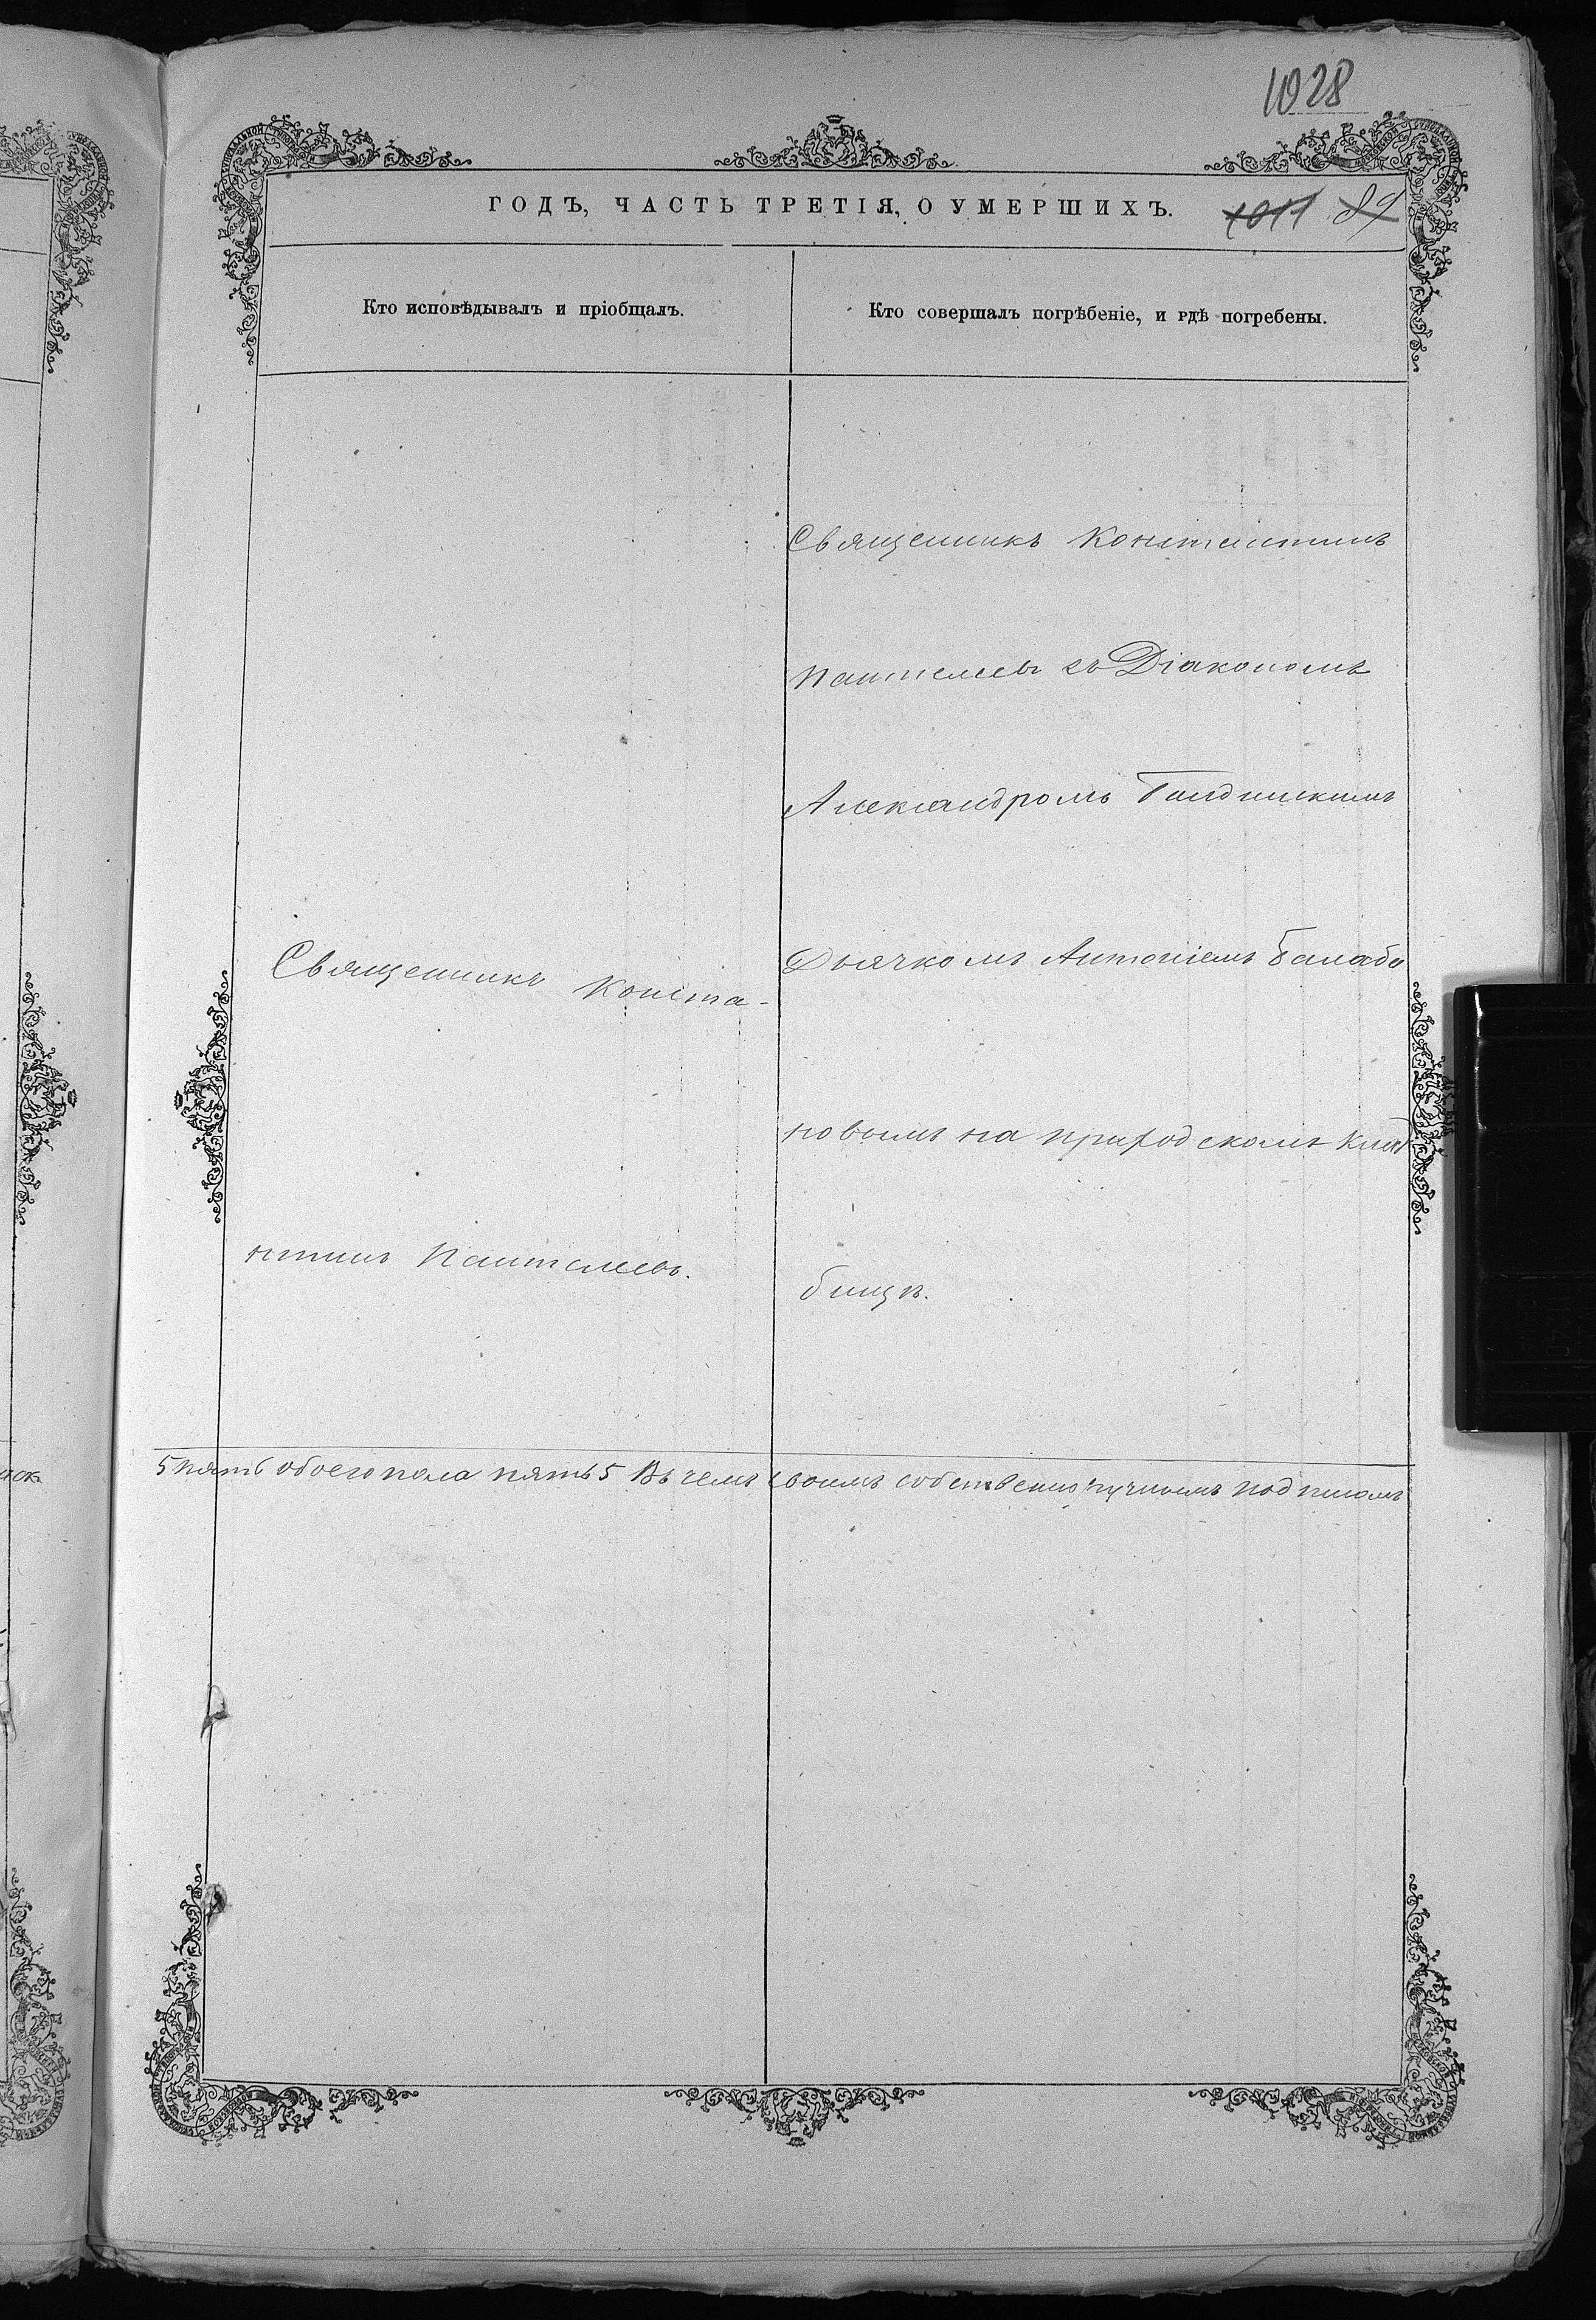 1028
ГОДЪ, ЧАСТЬ ТРЕТІЯ, О УМЕРШИХЪ.
1011 89
Кто исповѣдывалъ и пріобщалъ.
Кто совершалъ погрѣбеніе, и гдѣ погребены.
Священникъ Конста-
нтинъ Пантелеевъ.
Священникъ Константинъ
Пантелеевъ съ Діакономъ
Александромъ
Дьячкомъ Антоніемъ Балаба
новымъ на приходскомъ клад
бищѣ.
5 пять обоего пола пять 5 Въ чемъ своимъ собственоручнымъ подписомъ